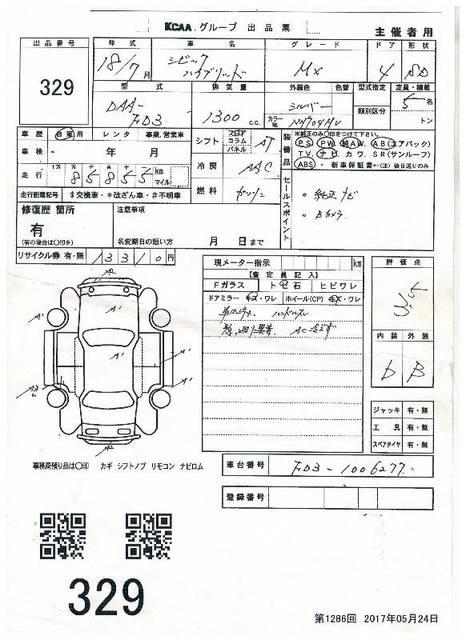 KCAA グループ 出品票
主催者用
出品番号
329
年式
18/7月
車名
シビック
ハイブリッド
グレード
MX
ドア
4
形状
SD
型式
DAA-
FD3
排気量
1300 c.c.
外装色
シルバー
色替
カラー№
NH704MU
型式指定
類別区分
定員・積載
5名
トン
車歴 自家用 レンタ 事業、営業車
車検 年 月
走行
十万 万 千 百 十
85855 KM マイル
走行距離記号 $ 交換車・*改ざん車・#不明車
シフト フロア コラム パネル AT
冷房 AAC
燃料 ガソリン
装備品
※純正のみ○印を付けて下さい。
PS PW AW AB(エアバック)
TV. ナビ カワ. SR(サンルーフ)
ABS ・新車保証書←(注)後日送りのみ
セールスポイント
・純正ナビ
・Bカメラ
修復歴 箇所
有
(有の場合は○印を)
注意事項
名変期日の短い方 月 日まで
リサイクル券 有・無 13310 円
現メーター指示 km
【査定員記入】
Fガラス トビ石 ヒビワレ
ドアミラー キズ・ワレ ホイール(CP) キズ・ワレ
評価点
3.5
内装 外装
D B
ジャッキ 有・無
工具 有・無
スペアタイヤ 有・無
A2
A1
A1
A1
事務局預り品は○印 カギ シフトノブ リモコン ナビロム
車台番号 FD3-1006277
登録番号
329
第1286回 2017年05月24日